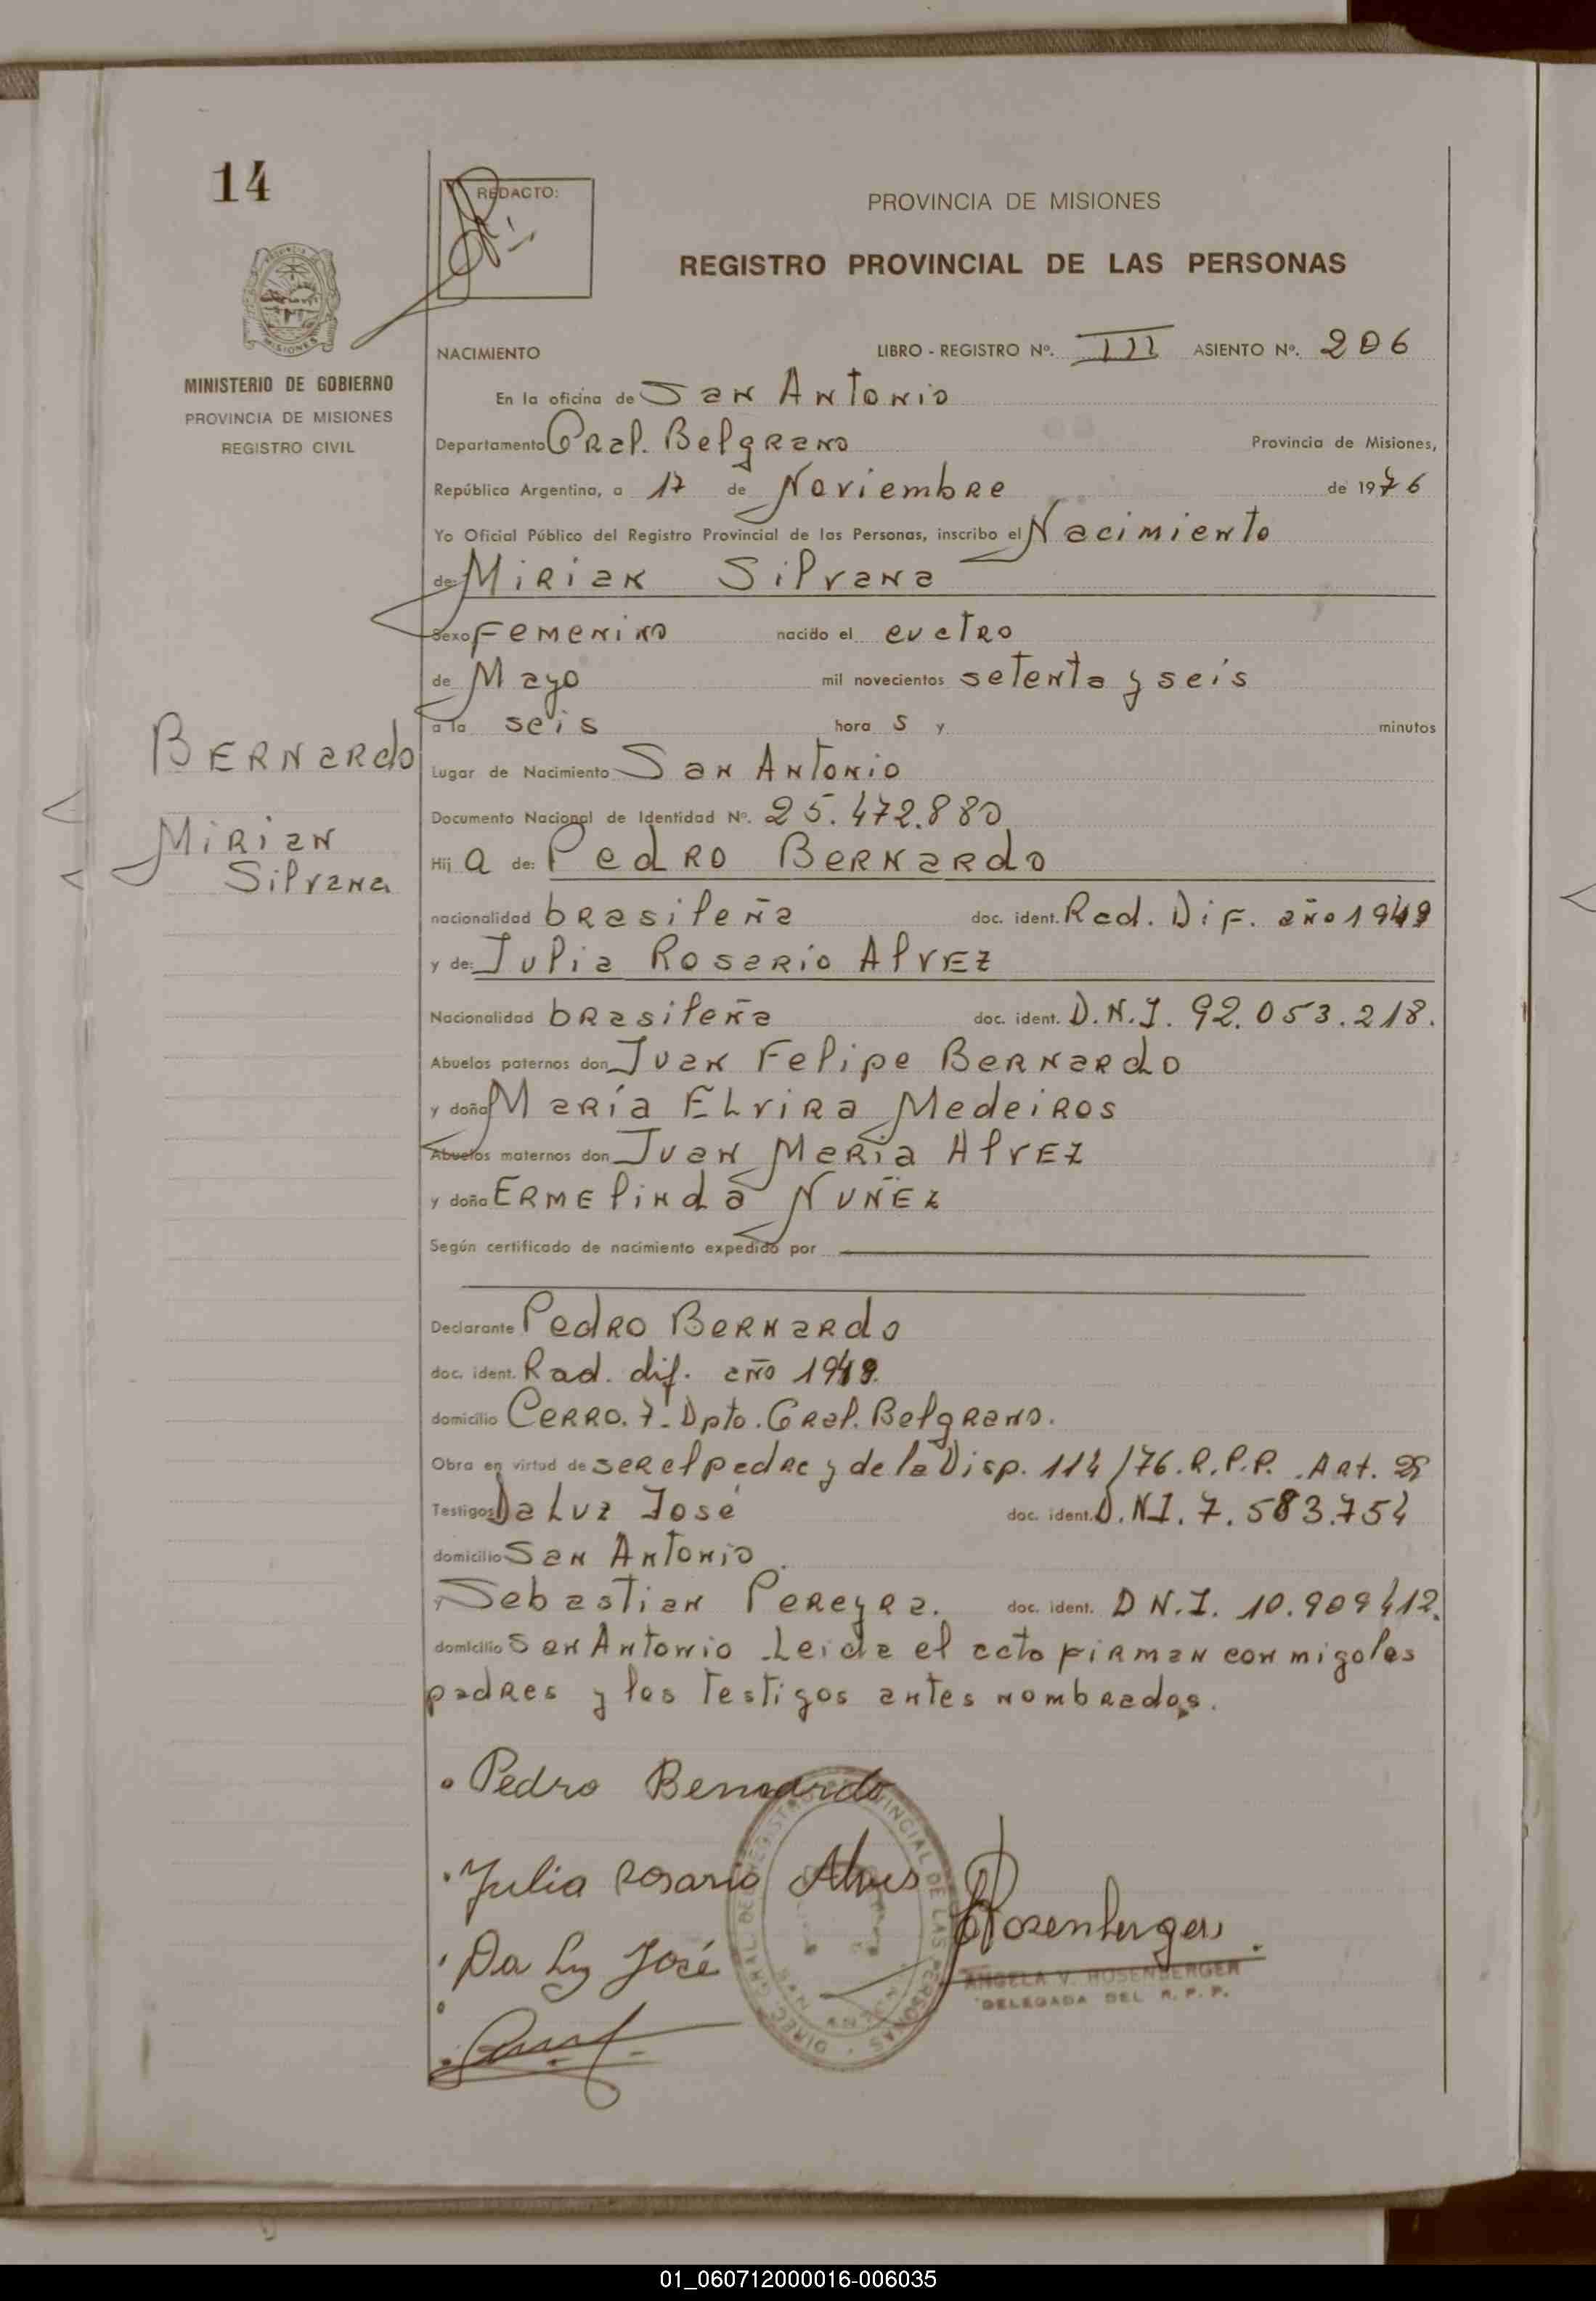 14
REDACTO:
PROVINCIA DE MISIONES
REGISTRO PROVINCIAL DE LAS PERSONAS
MISIONES
MINISTERIO DE GOBIERNO
PROVINCIA DE MISIONES
REGISTRO CIVIL
NACIMIENTO LIBRO - REGISTRO Nº. III ASIENTO Nº. 206
En la oficina de San Antonio
Departamento Gral. Belgrano Provincia de Misiones,
República Argentina, a 17 de Noviembre de 1976
Yo Oficial Público del Registro Provincial de las Personas, inscribo el Nacimiento
de: Mirian Silvana
Sexo Femenino nacido el cuatro
de Mayo mil novecientos setenta y seis
a la seis hora s y minutos
Bernardo
Mirian
Silvana
Lugar de Nacimiento San Antonio
Documento Nacional de Identidad Nº. 25.472.880
Hij a de: Pedro Bernardo
nacionalidad brasileña doc. ident. Rad. Dif. año 1949
y de: Julia Rosario Alvez
Nacionalidad brasileña doc. ident. D.N.I. 92.053.218.
Abuelos paternos don Juan Felipe Bernardo
y doña María Elvira Medeiros
Abuelos maternos don Juan María Alvez
y doña Ermelinda Nuñez
Según certificado de nacimiento expedido por
Declarante Pedro Bernardo
doc. ident. Rad. dif. año 1949.
domicilio Cerro. 7. Dpto. Gral. Belgrano.
Obra en virtud de ser el padre y de la Disp. 114/76. R.P.P. Art. 2º
Testigos Da Luz José doc. ident. D.N.I. 7.583.754
domicilio San Antonio.
y Sebastian Pereyra. doc. ident. D N.I. 10.909412.
domicilio San Antonio Leida el acta firman conmigo los
padres y los testigos antes nombrados.
Pedro Bernardo
Julia Rosario Alves
Da Luz José
Rosenberger
ANGELA V. ROSENBERGER
DELEGADA DEL R. P. P.
01_060712000016-006035